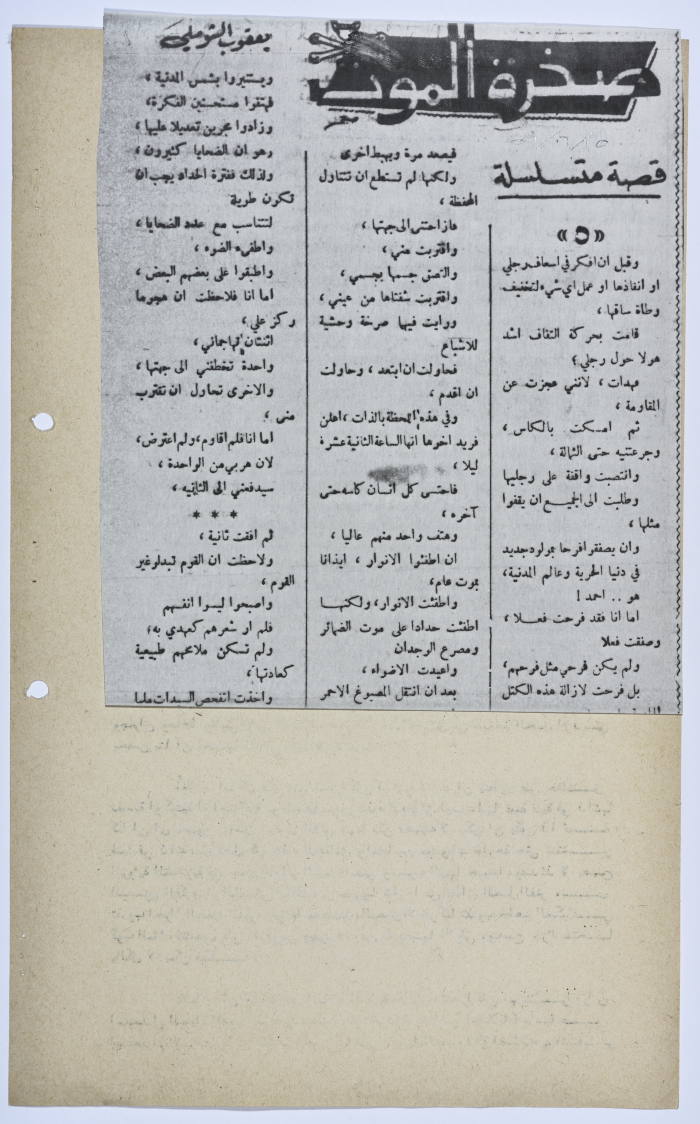 صخرة الموت
يعقوب الشوملي
قصة متسلسلة
«٥»
وقبل ان افكر في اسعاف رجلي
او انقاذها او عمل اي شيء لتخفيف
وطاة ساقها،
قامت بحركة التفاف اشد
هولا حول رجلي؟
فهدات، لانني عجزت عن
المقاومة،
ثم امسكت بالكاس،
وجرعتنيه حتى الثمالة،
وانتصبت واقفة على رجليها
وطلبت الى الجميع ان يقفوا
مثلها،
وان يصفقوا فرحا بمولود جديد
في دنيا الحرية وعالم المدنية،
هو .. احمد!
اما انا فقد فرحت فعلا،
وصفقت فعلا
ولم يكن فرحي مثل فرحهم،
بل فرحت لازالة هذه الكتل
فيصعد مرة ويهبط اخرى
ولكنها لم تستطع ان تتناول
المحفظة،
هاز احتنى الى جهتها،
واقتربت مني،
والتصق جسمها بجسمي،
واقتربت شفتاها من عيني،
ورايت فيها صرخة وحشية
للاشباع
فحاولت ان ابتعد، وحاولت
ان اقدم،
وفي هذه اللحظة بالذات، اعلن
فريد اخوها انها الساعة الثانية عشرة
ليلا،
فاحتسى كل انسان كاسه حتى
آخره،
وهتف واحد منهم عاليا،
ان اطفئوا الانوار، ايذانا
بموت عام،
واطفئت الانوار، ولكنها
اطفئت حدادا على موت الضمائر
ومصرع الوجدان
واعيدت الاضواء،
بعد ان انتقل المصبوغ الاحمر
ويستنيروا بشمس المدنية،
فهتفوا مستحسنين الفكرة،
وزادوا مجرين تعديلا عليها،
وهو ان الضحايا كثيرون،
ولذلك ففترة الحداد يجب ان
تكون طويلة
لتتناسب مع عدد الضحايا،
واطفىء الضوء،
واطبقوا على بعضهم البعض،
اما انا فلاحظت ان هجوما
ركز علي،
اثنتان تهاجماني،
واحدة تخطفني الى جهتها،
والاخرى تحاول ان تقترب
منى،
اما انا فلم اقاوم، ولم اعترض،
لان هربي من الواحدة،
سيدفعني الى الثانيه،
* * *
ثم افقت ثانية،
ولاحظت ان القوم تبدلو غير
القوم،
واصبحوا ليسوا انفسهم
فلم ار شعرهم كعهدي به،
ولم تسكن ملامحهم طبيعية
كعادتها،
واخذت اتفحص السيدات مليا